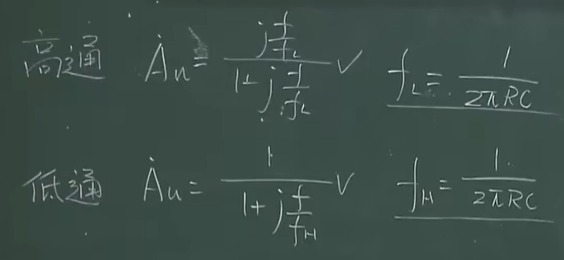 高通 Ȧu = (j f/fL) / (1+j f/fL) √ fL = 1/(2πRC)
低通 Ȧu = 1 / (1+j f/fH) √ fH = 1/(2πRC)